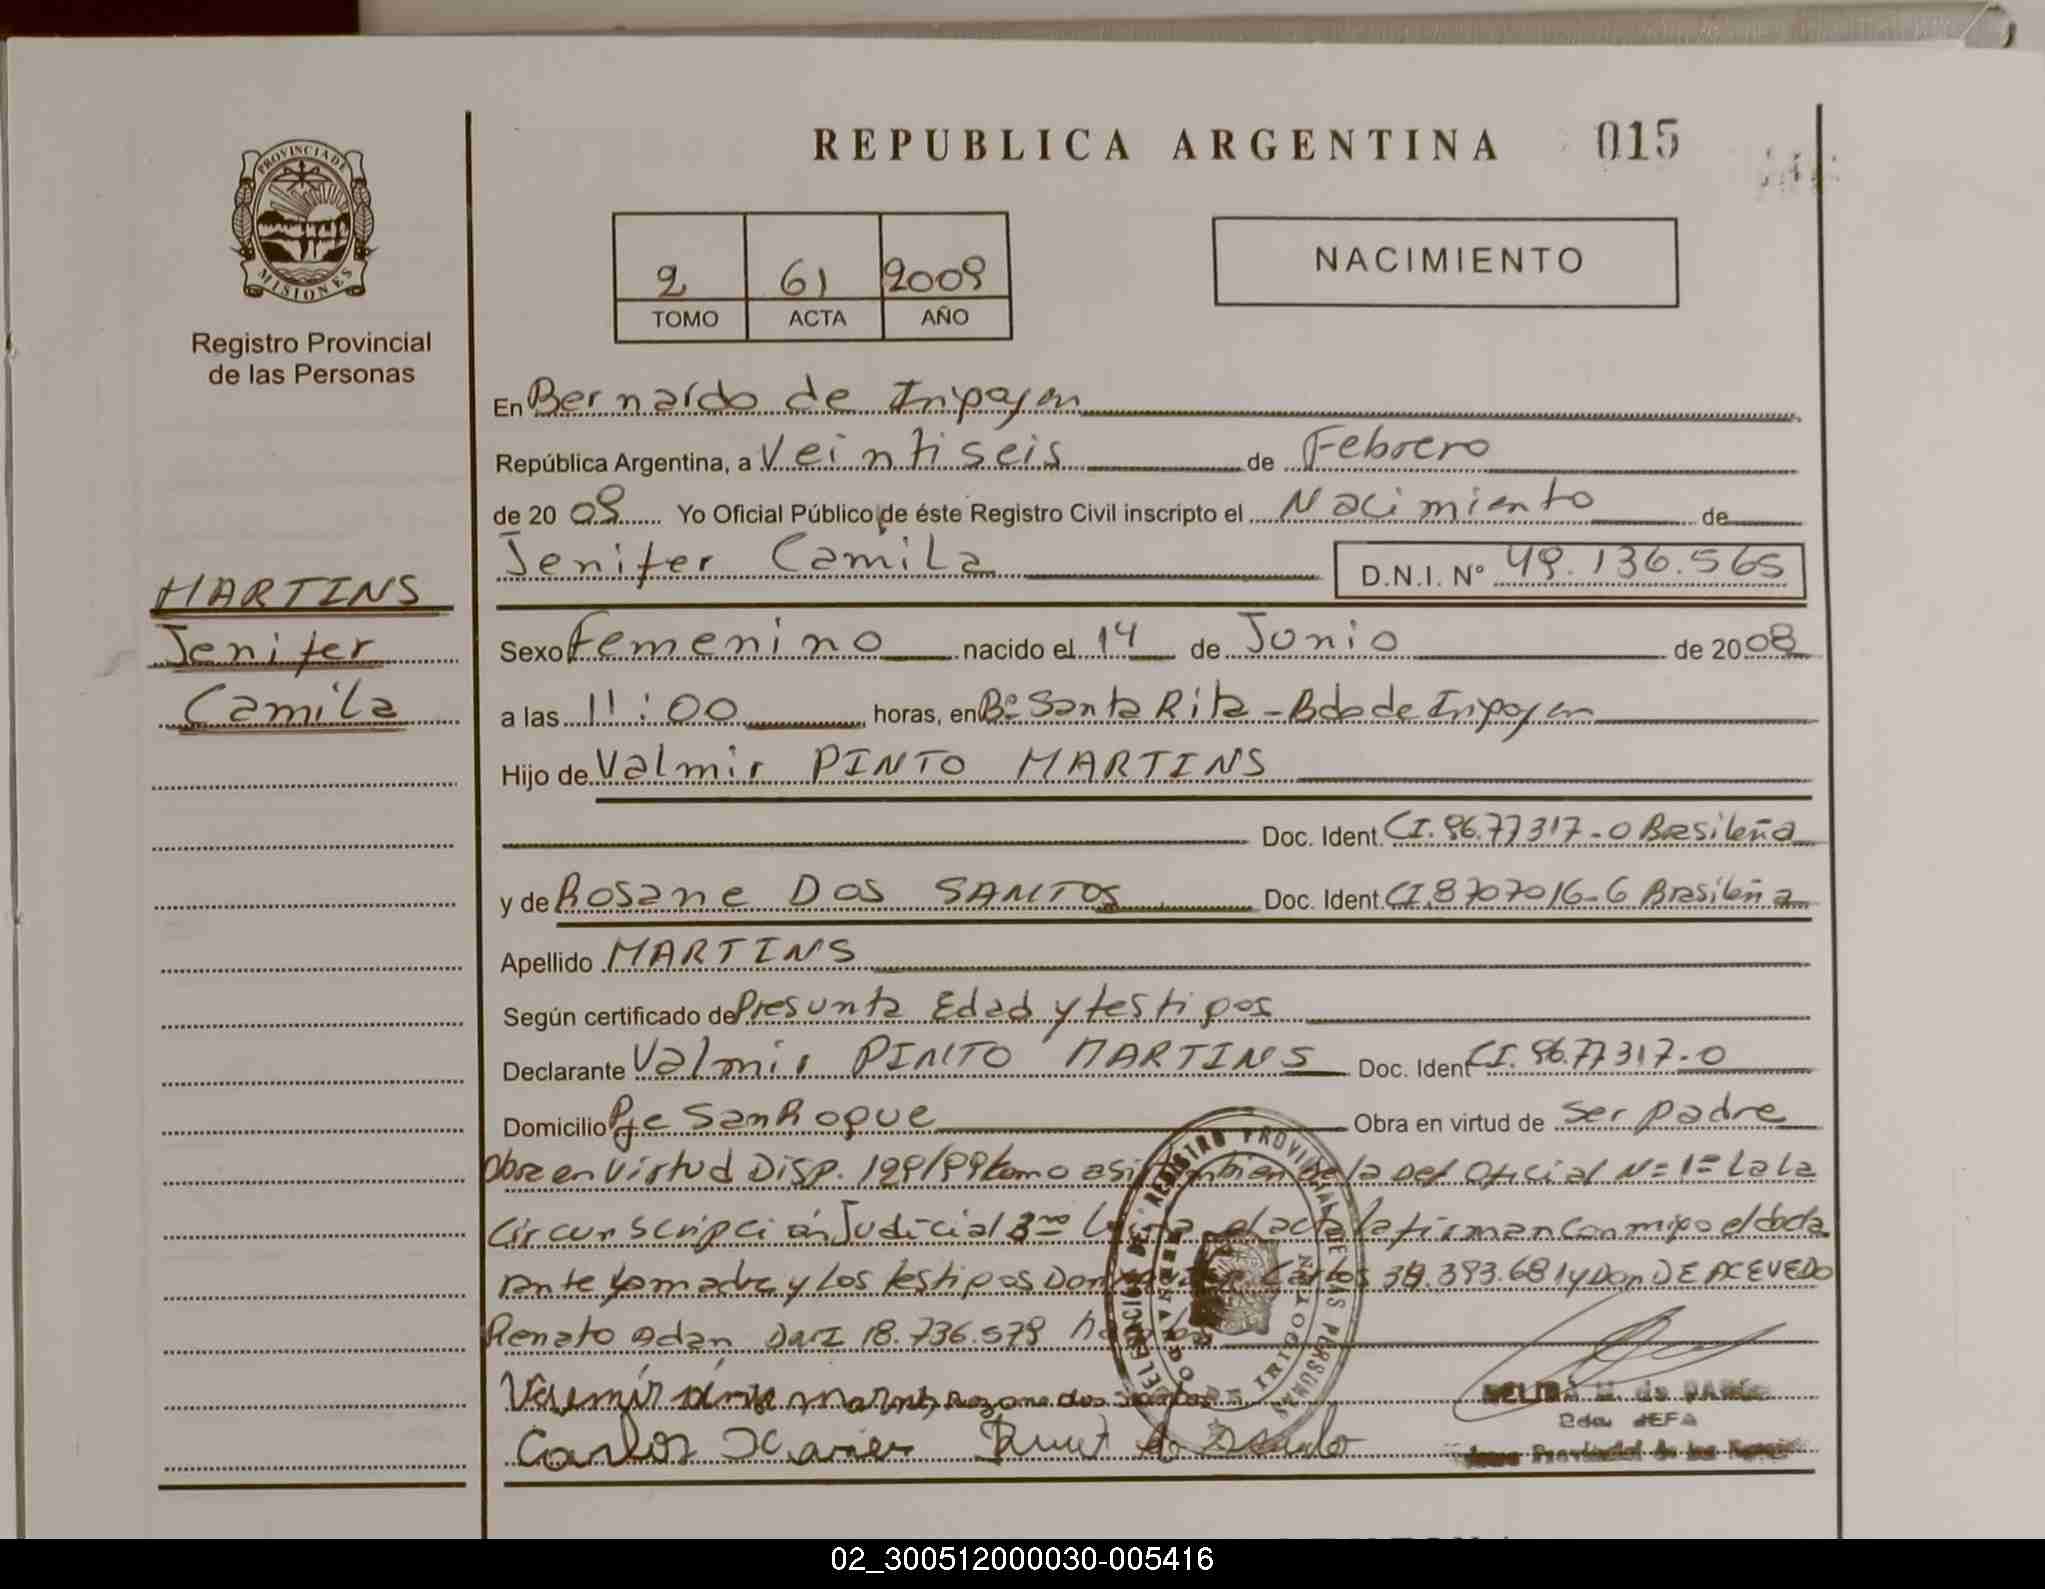 REPUBLICA ARGENTINA 015
PROVINCIA DE MISIONES
Registro Provincial
de las Personas
2 61 2009
TOMO ACTA AÑO
NACIMIENTO
En Bernardo de Iripoyen
República Argentina, a Veintiseis de Febrero
de 20 09 Yo Oficial Público de éste Registro Civil inscripto el Nacimiento de
Jenifer Camila D.N.I. Nº 49.136.565
MARTINS
Jenifer
Camila
Sexo Femenino nacido el 14 de Junio de 2008
a las 11:00 horas, en Bº Santa Rita - Bdo de Iripoyen
Hijo de Valmir PINTO MARTINS
Doc. Ident. CI. 96.77317-0 Brasileña
y de Rosane DOS SANTOS Doc. Ident. CI.8707016-6 Brasileña
Apellido MARTINS
Según certificado de Presunta Edad y testipos
Declarante Valmir PINTO MARTINS Doc. Ident CI. 96.77317-0
Domicilio Pje San Roque Obra en virtud de ser padre
Obra en virtud Disp. 199/99 como asi tambien de la Def Oficial N= 1= La La
Circunscripción Judicial 3= el acta la firman conmipo el decla
rante la madre y los testipos Don Carlos 38.393.681 y Don DE ACEVEDO
Renato Adan DNI 18.736.579
DELEGACION DEL REGISTRO PROVINCIAL DE LAS PERSONAS
BERNARDO DE IRIGOYEN
Carlos Xavier
2da. JEFA
02_300512000030-005416